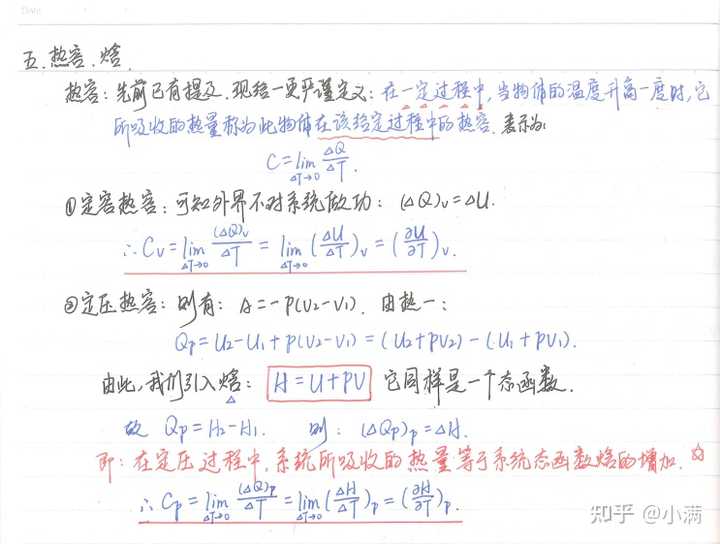 Date
五. 热容. 焓.
热容: 先前已有提及. 现给一更严谨定义: 在一定过程中, 当物体的温度升高一度时, 它
所吸收的热量称为此物体在该给定过程中的热容. 表示为:
C = lim ΔT→0 ΔQ/ΔT.
①定容热容: 可知外界不对系统做功: (ΔQ)v = ΔU.
∴ Cv = lim ΔT→0 (ΔQ)v/ΔT = lim ΔT→0 (ΔU/ΔT)v = (∂U/∂T)v.
②定压热容: 则有: A = -P(V2-V1). 由热一:
Qp = U2-U1+P(V2-V1) = (U2+PV2)-(U1+PV1).
由此, 我们引入焓: H = U+PV 它同样是一个态函数.
故 Qp = H2-H1. 则: (ΔQp)p = ΔH.
即: 在定压过程中, 系统所吸收的热量等于系统态函数焓的增加. ☆
∴ Cp = lim ΔT→0 (ΔQ)p/ΔT = lim ΔT→0 (ΔH/ΔT)p = (∂H/∂T)p.
知乎 @小满